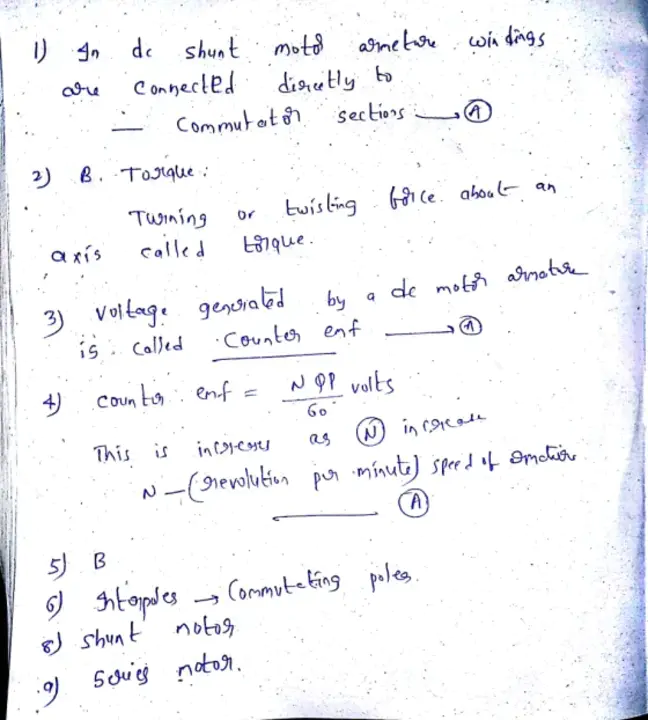 1) In dc shunt motor armeture windings
are connected directly to
— Commutator sections → (A)
2) B. Torque:
Turning or twisting force about an
axis called torque.
3) Voltage generated by a dc motor armature
is called Counter emf → (A)
4) counter emf = NφP/60 volts
This is increases as (N) increase
N — (revolution per minute) speed of
(A)
5) B
6) Interpoles → Commutating poles.
8) shunt motor
9) Series motor.